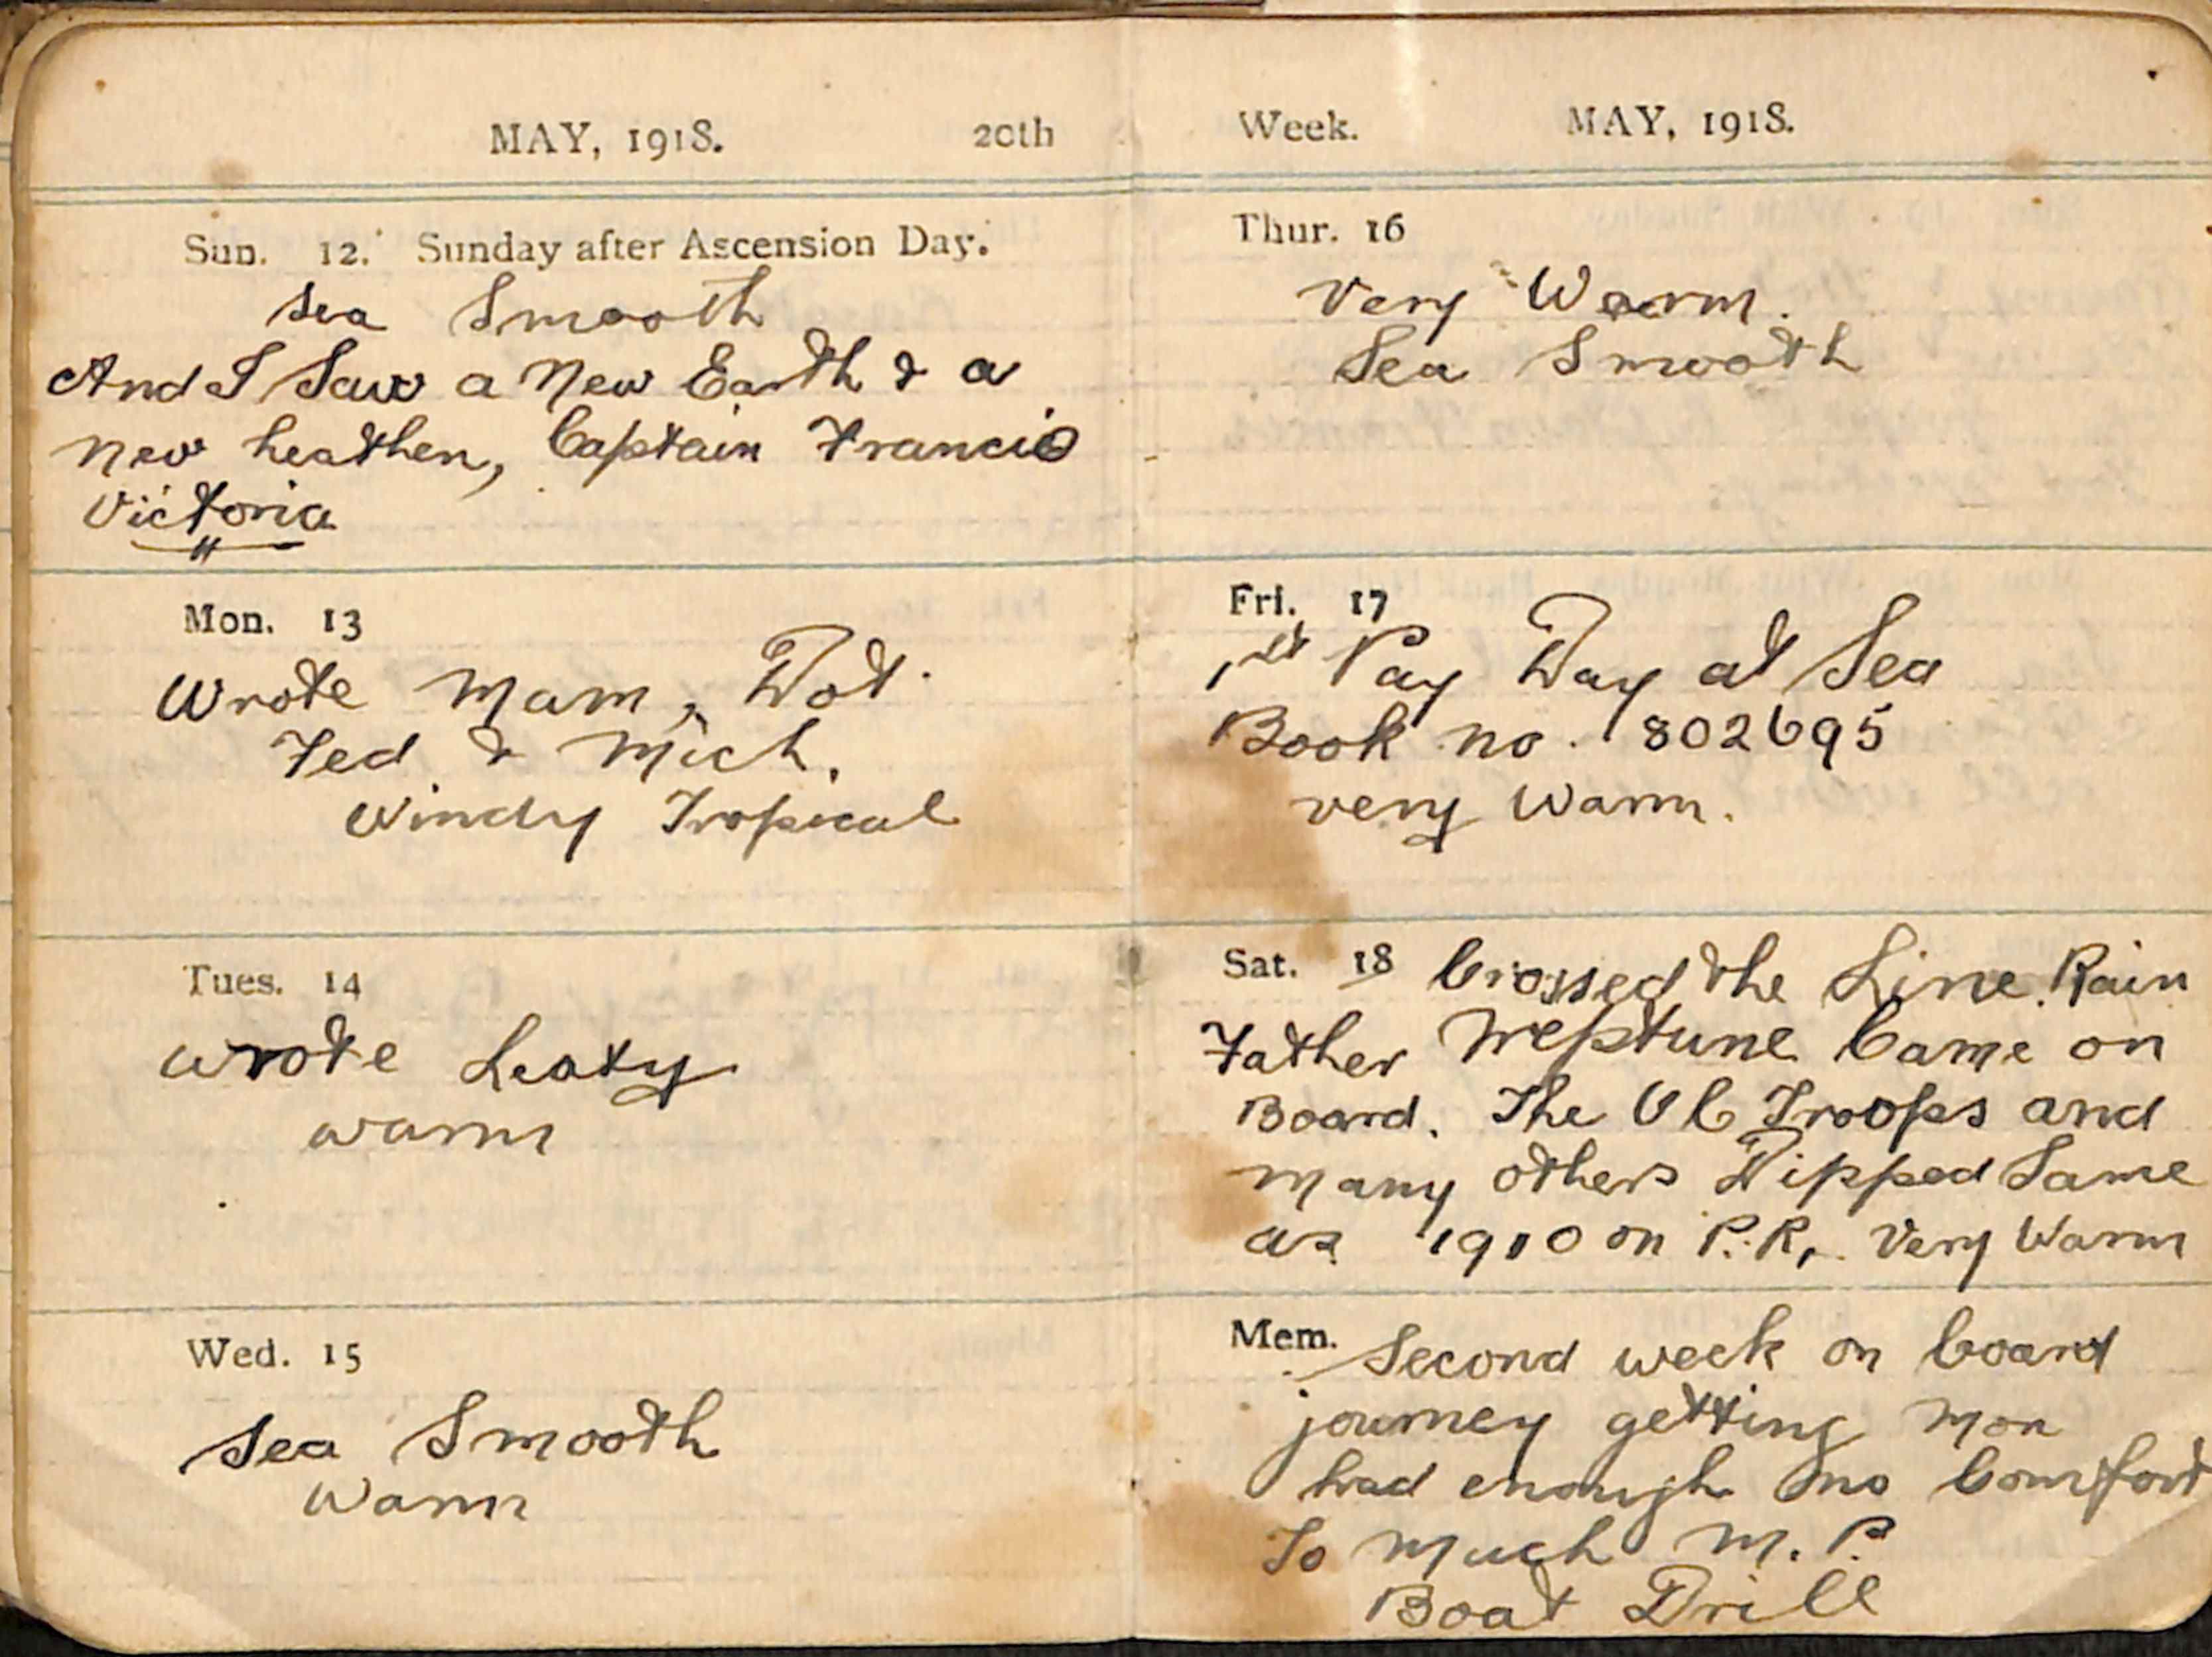 MAY, 1918. 20th
Sun. 12. Sunday after Ascension Day.
Sea Smooth
And I Saw a New Earth & a
New heathen, Captain Francis
Victoria
Mon. 13
Wrote Mam, Dot.
Ted & Mich.
Windy Tropical
Tues. 14
Wrote Leaty
warm
Wed. 15
Sea Smooth
Warm
Week. MAY, 1918.
Thur. 16
Very Warm.
Sea Smooth
Fri. 17
1st Pay Day at Sea
Book no. 802695
very Warm.
Sat. 18 Crossed the Line. Rain
Father Neptune Came on
Board. The Troops and
many others Dipped Same
as 1910 on P.R, Very Warm
Mem. Second week on board
journey getting mon
had enough no Comfort
To much M.P.
Boat Drill